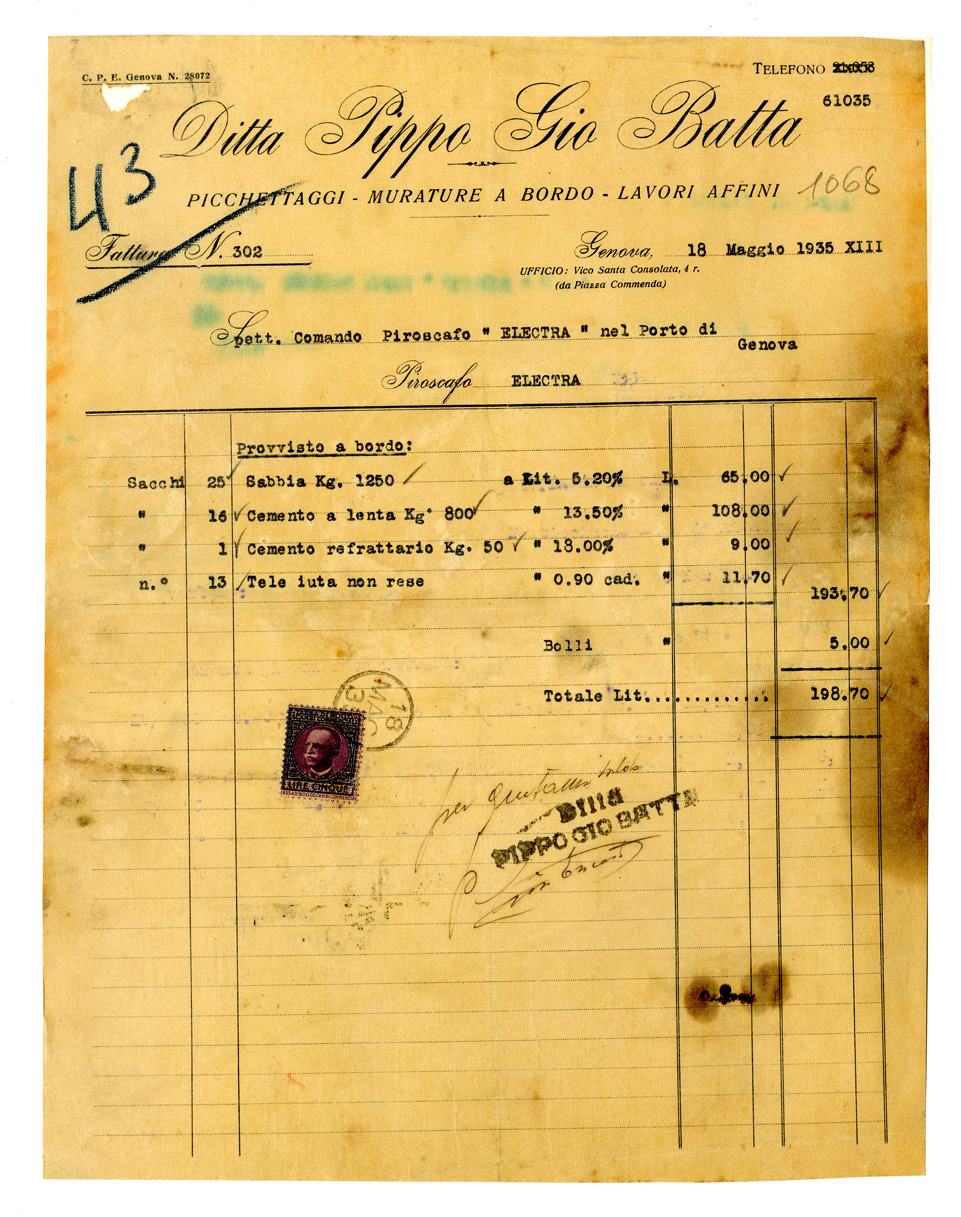 C. P. E. Genova N. 28072
TELEFONO
61035
Ditta Pippo Gio Batta
43
PICCHETTAGGI - MURATURE A BORDO - LAVORI AFFINI
1068
Fattura N. 302
Genova, 18 Maggio 1935 XIII
UFFICIO: Vico Santa Consolata, 4 r.
(da Piazza Commenda)
Spett. Comando Piroscafo " ELECTRA " nel Porto di
Genova
Piroscafo ELECTRA
Provvisto a bordo:
Sacchi 25 Sabbia Kg. 1250 a Lit. 5.20% L. 65,00
" 16 Cemento a lenta Kg. 800 " 13.50% " 108.00
" 1 Cemento refrattario Kg. 50 " 18.00% " 9.00
n.° 13 Tele iuta non rese " 0.90 cad. " 11.70
193.70
Bolli " 5.00
Totale Lit............. 198.70
18
MAG
LIRE CINQUE
per
Ditta
PIPPO GIO BATTA